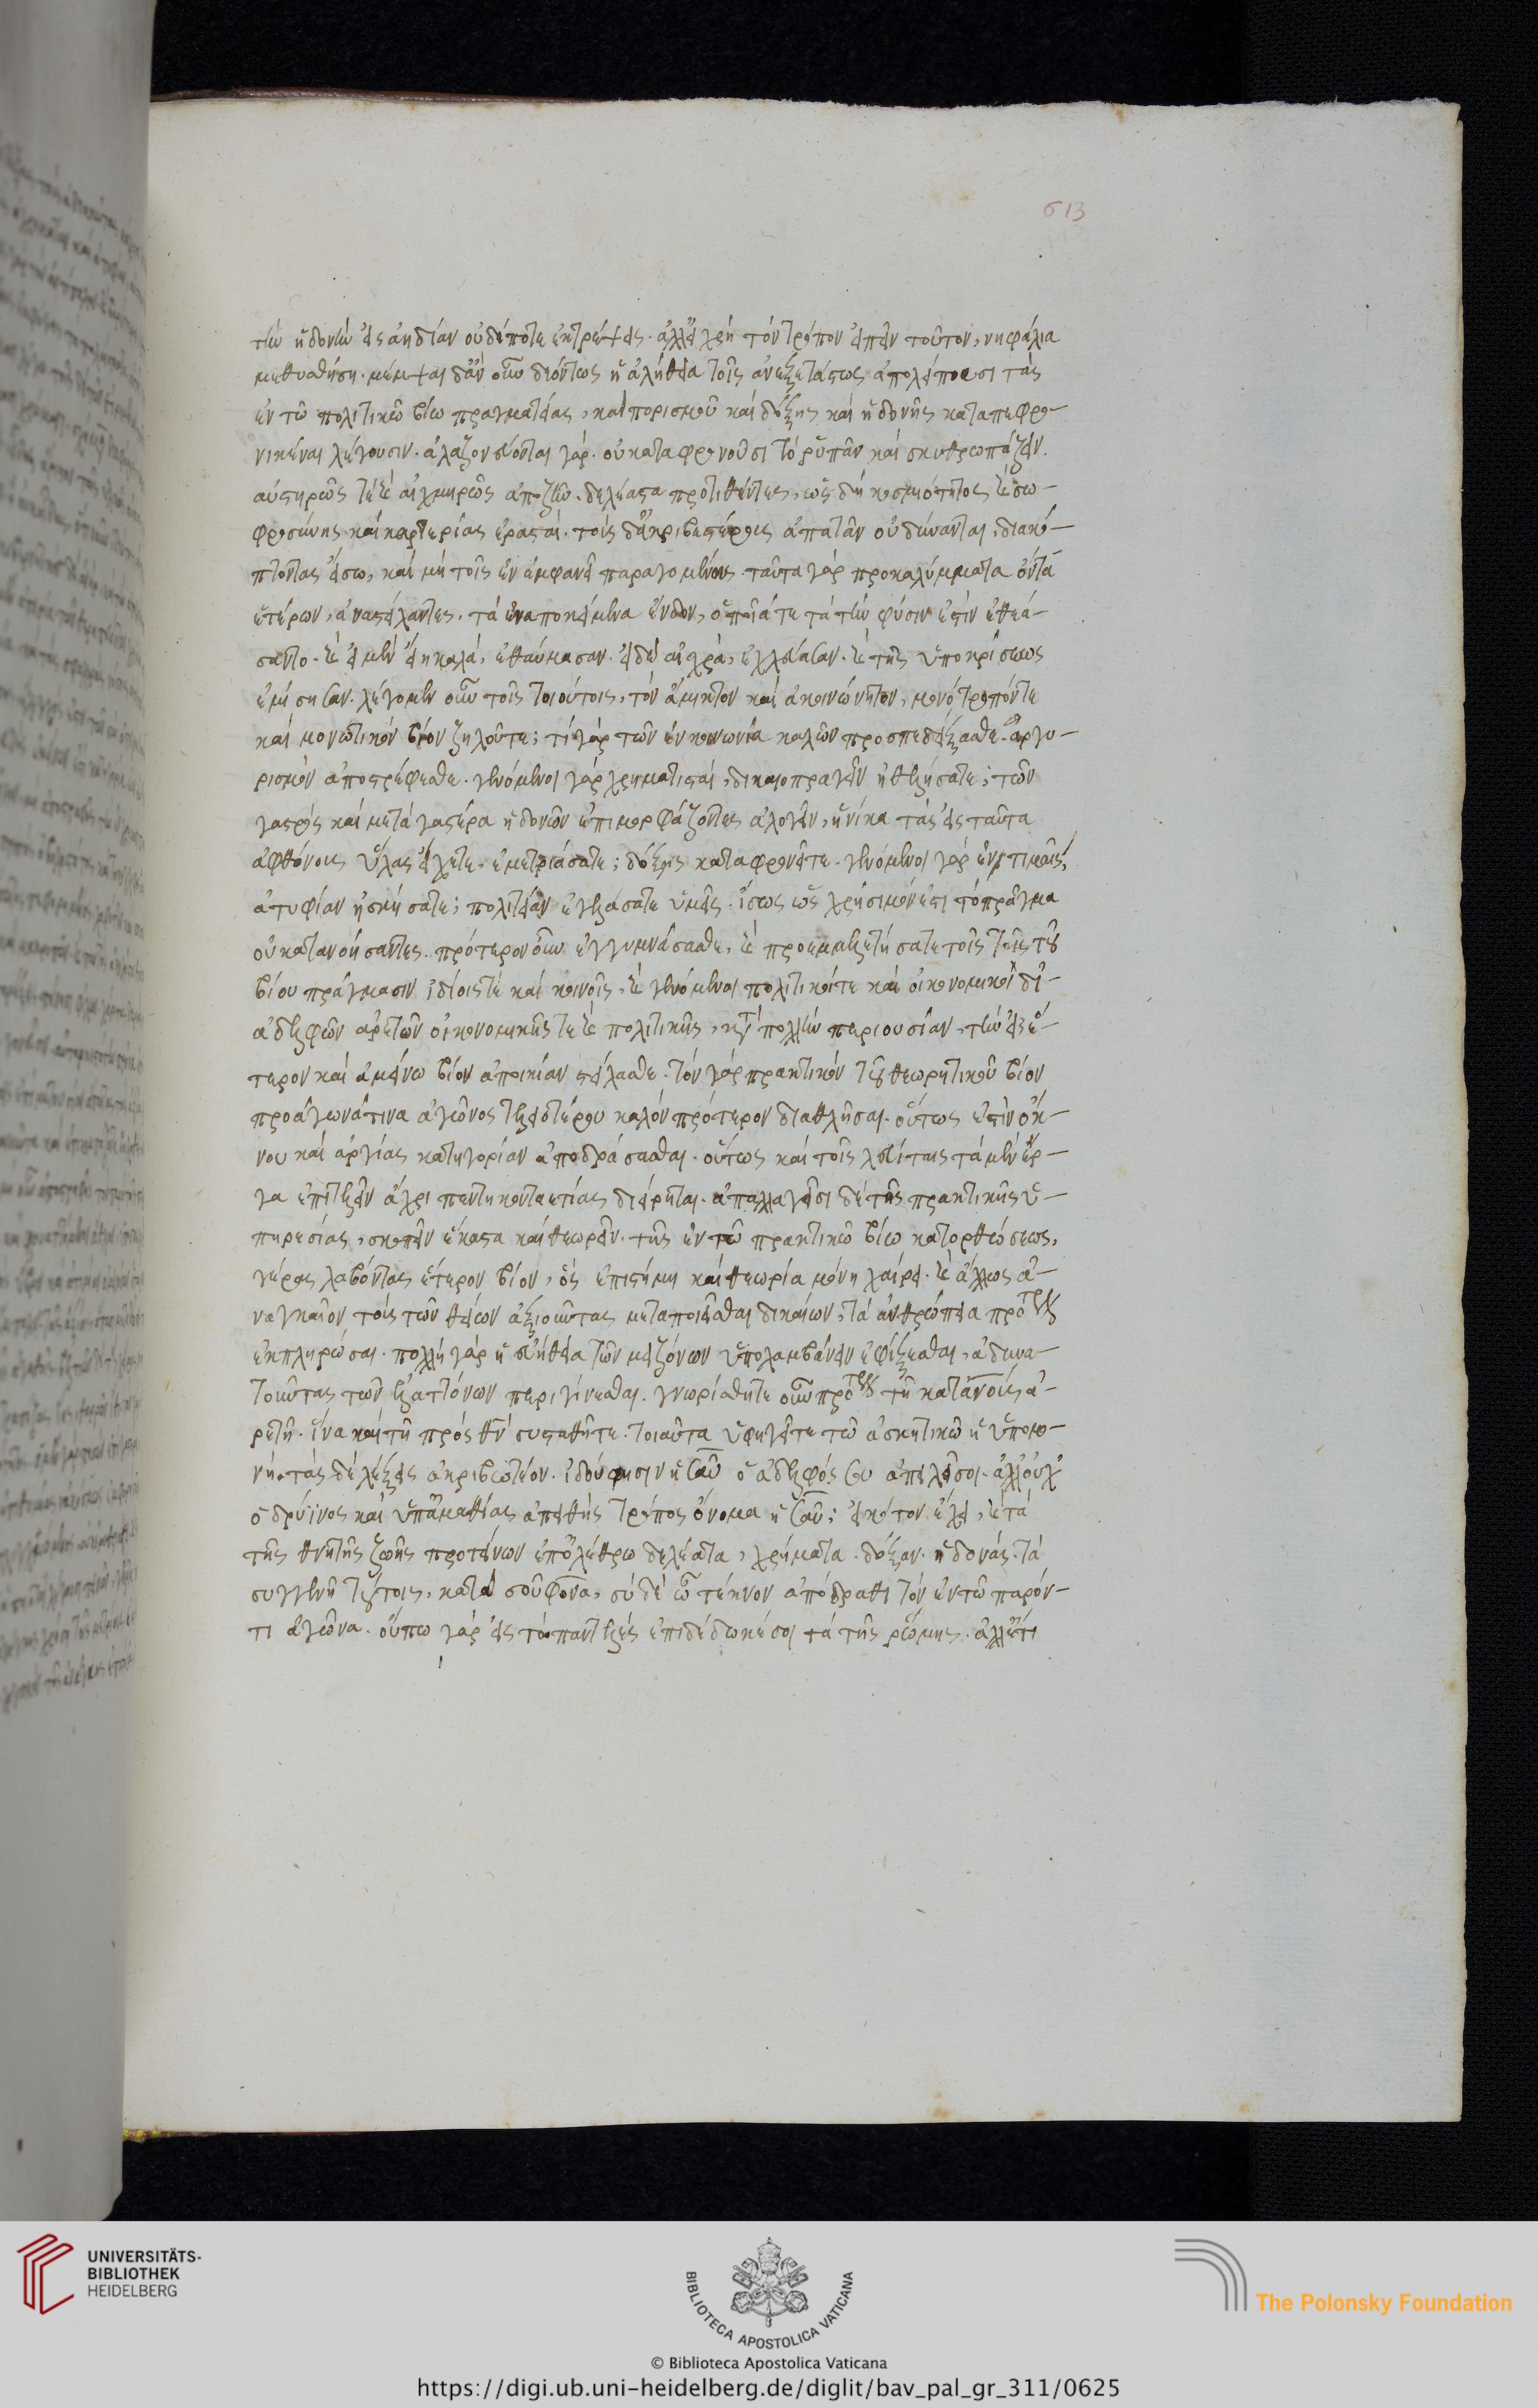 613
τῶν ἡδονῶν εἰς ἀηδίαν οὐδέποτε ἐκτρέψεις. ἀλλ' εἰ χρὴ τὸν τρόπον εἰπεῖν τοῦτον, νηφάλια
μεθυσθήσῃ. μέμψαι δ' ἂν οὖν δεόντως ἡ ἀλήθεια τοῖς ἀνεξετάστως ἀπολείπουσι τὰς
ἐν τῶ πολιτικῶ βίω πραγματείας, καὶ πορισμοῦ καὶ δόξης καὶ ἡδονῆς καταπεφρο-
νηκέναι λέγουσιν. ἀλαζονεύονται γάρ. οὐ καταφρονοῦσι τὸ ῥυπᾶν καὶ σκυθρωπάζειν.
αὐστηρῶς τὲ καὶ αὐχμηρῶς ἀποζῆν. δελέατα προτιθέντες, ὡς δὴ κοσμιότητος καὶ σω-
φροσύνης καὶ καρτερίας ἐρασταί. τοὺς δ' ἀκριβεστέρους ἀπατᾶν οὐ δύνανται, διακύ-
πτοντας εἴσω, καὶ μὴ τοῖς ἐν ἐμφανεῖ παραγομένους. ταῦτα γὰρ προκαλύμματα ὄντα
ἑτέρων, ἀναστείλαντες, τὰ ἐναποκείμενα ἔνδον, ὁποῖά τε τὰ τὴν φύσιν ἐστὶν ἐθεά-
σαντο. καὶ εἰ μὲν εἴη καλά, ἐθαύμασαν. εἰ δὲ αἰσχρὰ, ἐχλεύασαν. καὶ τῆς ὑποκρίσεως
ἐμίσησαν. λέγομεν οὖν τοῖς τοιούτοις, τὸν ἄμικτον καὶ ἀκοινώνητον, μονότροπόν τε
καὶ μονωτικὸν βίον ζηλοῦτε; τί γὰρ τῶν ἐν κοινωνία καλῶν προσπεδείξασθε. ἀργυ-
ρισμὸν ἀποστρέφεσθε. γενόμενοι γὰρ χρηματισταί, δικαιοπραγεῖν ἠθελήσατε; τῶν
γαστρὸς καὶ μετὰ γαστέρα ἡδονῶν ἐπιμορφάζοντες ἀλογεῖν, ἡνίκα τὰς εἰς ταῦτα
ἀφθόνους ὕλας εἴχετε. ἐμετριάσατε; δόξης καταφρονεῖτε. γενόμενοι γὰρ ἐν τιμαῖς,
ἀτυφίαν ἠσκήσατε; πολιτείαν ἐγελάσατε ὑμεῖς. ἴσως ὡς χρήσιμόν ἐστι τὸ πρᾶγμα
οὐ κατανοήσαντες. πρότερον οὖν ἐγγυμνάσασθε, καὶ προεμμελετήσατε τοῖς τοῖς τοῦ
βίου πράγμασιν ἰδίοις τὲ καὶ κοινοῖς, καὶ γενόμενοι πολιτικοί τε καὶ οἰκονομικοὶ δι'
ἀδελφῶν ἀρετῶν οἰκονομικῆς τε καὶ πολιτικῆς, κατὰ πολλὴν περιουσίαν, τὴν εἰς ἕ-
τερον καὶ ἀμείνω βίον ἀποικίαν στείλασθε. τὸν γὰρ πρακτικὸν τοῦ θεωρητικοῦ βίον
προάγωνά τινα ἀγῶνος τελειοτέρου καλὸν πρότερον διαθλῆσαι. οὕτως ἐστὶν ὄκ-
νου καὶ ἀργίας κατηγορίαν ἀποδράσασθαι. οὕτως καὶ τοῖς λευίταις τὰ μὲν ἔρ-
γα ἐπιτελεῖν ἄχρι πεντηκονταετίας διείρηται. ἀπαλλαγεῖσι δὲ τῆς πρακτικῆς ὑ-
πηρεσίας, σκοπεῖν ἕκαστα καὶ θεωρεῖν. τῆς ἐν τῶ πρακτικῶ βίω κατορθώσεως,
γέρας λαβόντας ἕτερον βίον, ὃς ἐπιστήμη καὶ θεωρία μόνη χαίρει. καὶ ἄλλως ἀ-
ναγκαῖον τοὺς τῶν θείων ἀξιοῦντας μεταποιεῖσθαι δικαίων, τὰ ἀνθρώπεια πρότερον
ἐκπληρῶσαι. πολλὴ γὰρ ἡ εὐήθεια τῶν μειζόνων ὑπολαμβάνειν ἐφίξεσθαι, ἀδυνα-
τοῦντας τῶν ἐλαττόνων περιγίνεσθαι. γνωρίσθητε οὖν πρότερον τῇ κατ' ἀνους ἀ-
ρετῇ. ἵνα καὶ τῇ πρὸς θν συσταθῆτε. τοιαῦτα ὑφηγεῖται τῶ ἀσκητικῶ ἡ ὑπομο-
νή. τὰς δὲ λέξεις ἀκριβωτέον. ἰδού φησιν ἠσαῦ ὁ ἀδελφός σου ἀπειλεῖ σοι. ἀλλ' οὐχ
ὁ δρύϊνος καὶ ὑπ' ἀμαθίας ἀπειθὴς τρόπος ὄνομα ἠσαῦ; εἰκότον εἶχε, καὶ τὰ
τῆς θνητῆς ζωῆς προτείνων ἐπ' ὀλέθρω δελέατα, χρήματα. δόξαν. ἡδονάς. τὰ
συγγενῆ τούτοις, κατὰ σοῦ φονᾶ, σὺ δὲ ὦ τέκνον ἀπόδραθι τὸν ἐν τῶ παρόν-
τι ἀγῶνα. οὔπω γὰρ εἰς τὸ παντελὲς ἐπιδέδωκέ σοι τὰ τῆς ῥώμης. ἀλλ' ἔτι
UNIVERSITÄTS-
BIBLIOTHEK
HEIDELBERG
BIBLIOTECA APOSTOLICA VATICANA
The Polonsky Foundation
© Biblioteca Apostolica Vaticana
https://digi.ub.uni-heidelberg.de/diglit/bav_pal_gr_311/0625